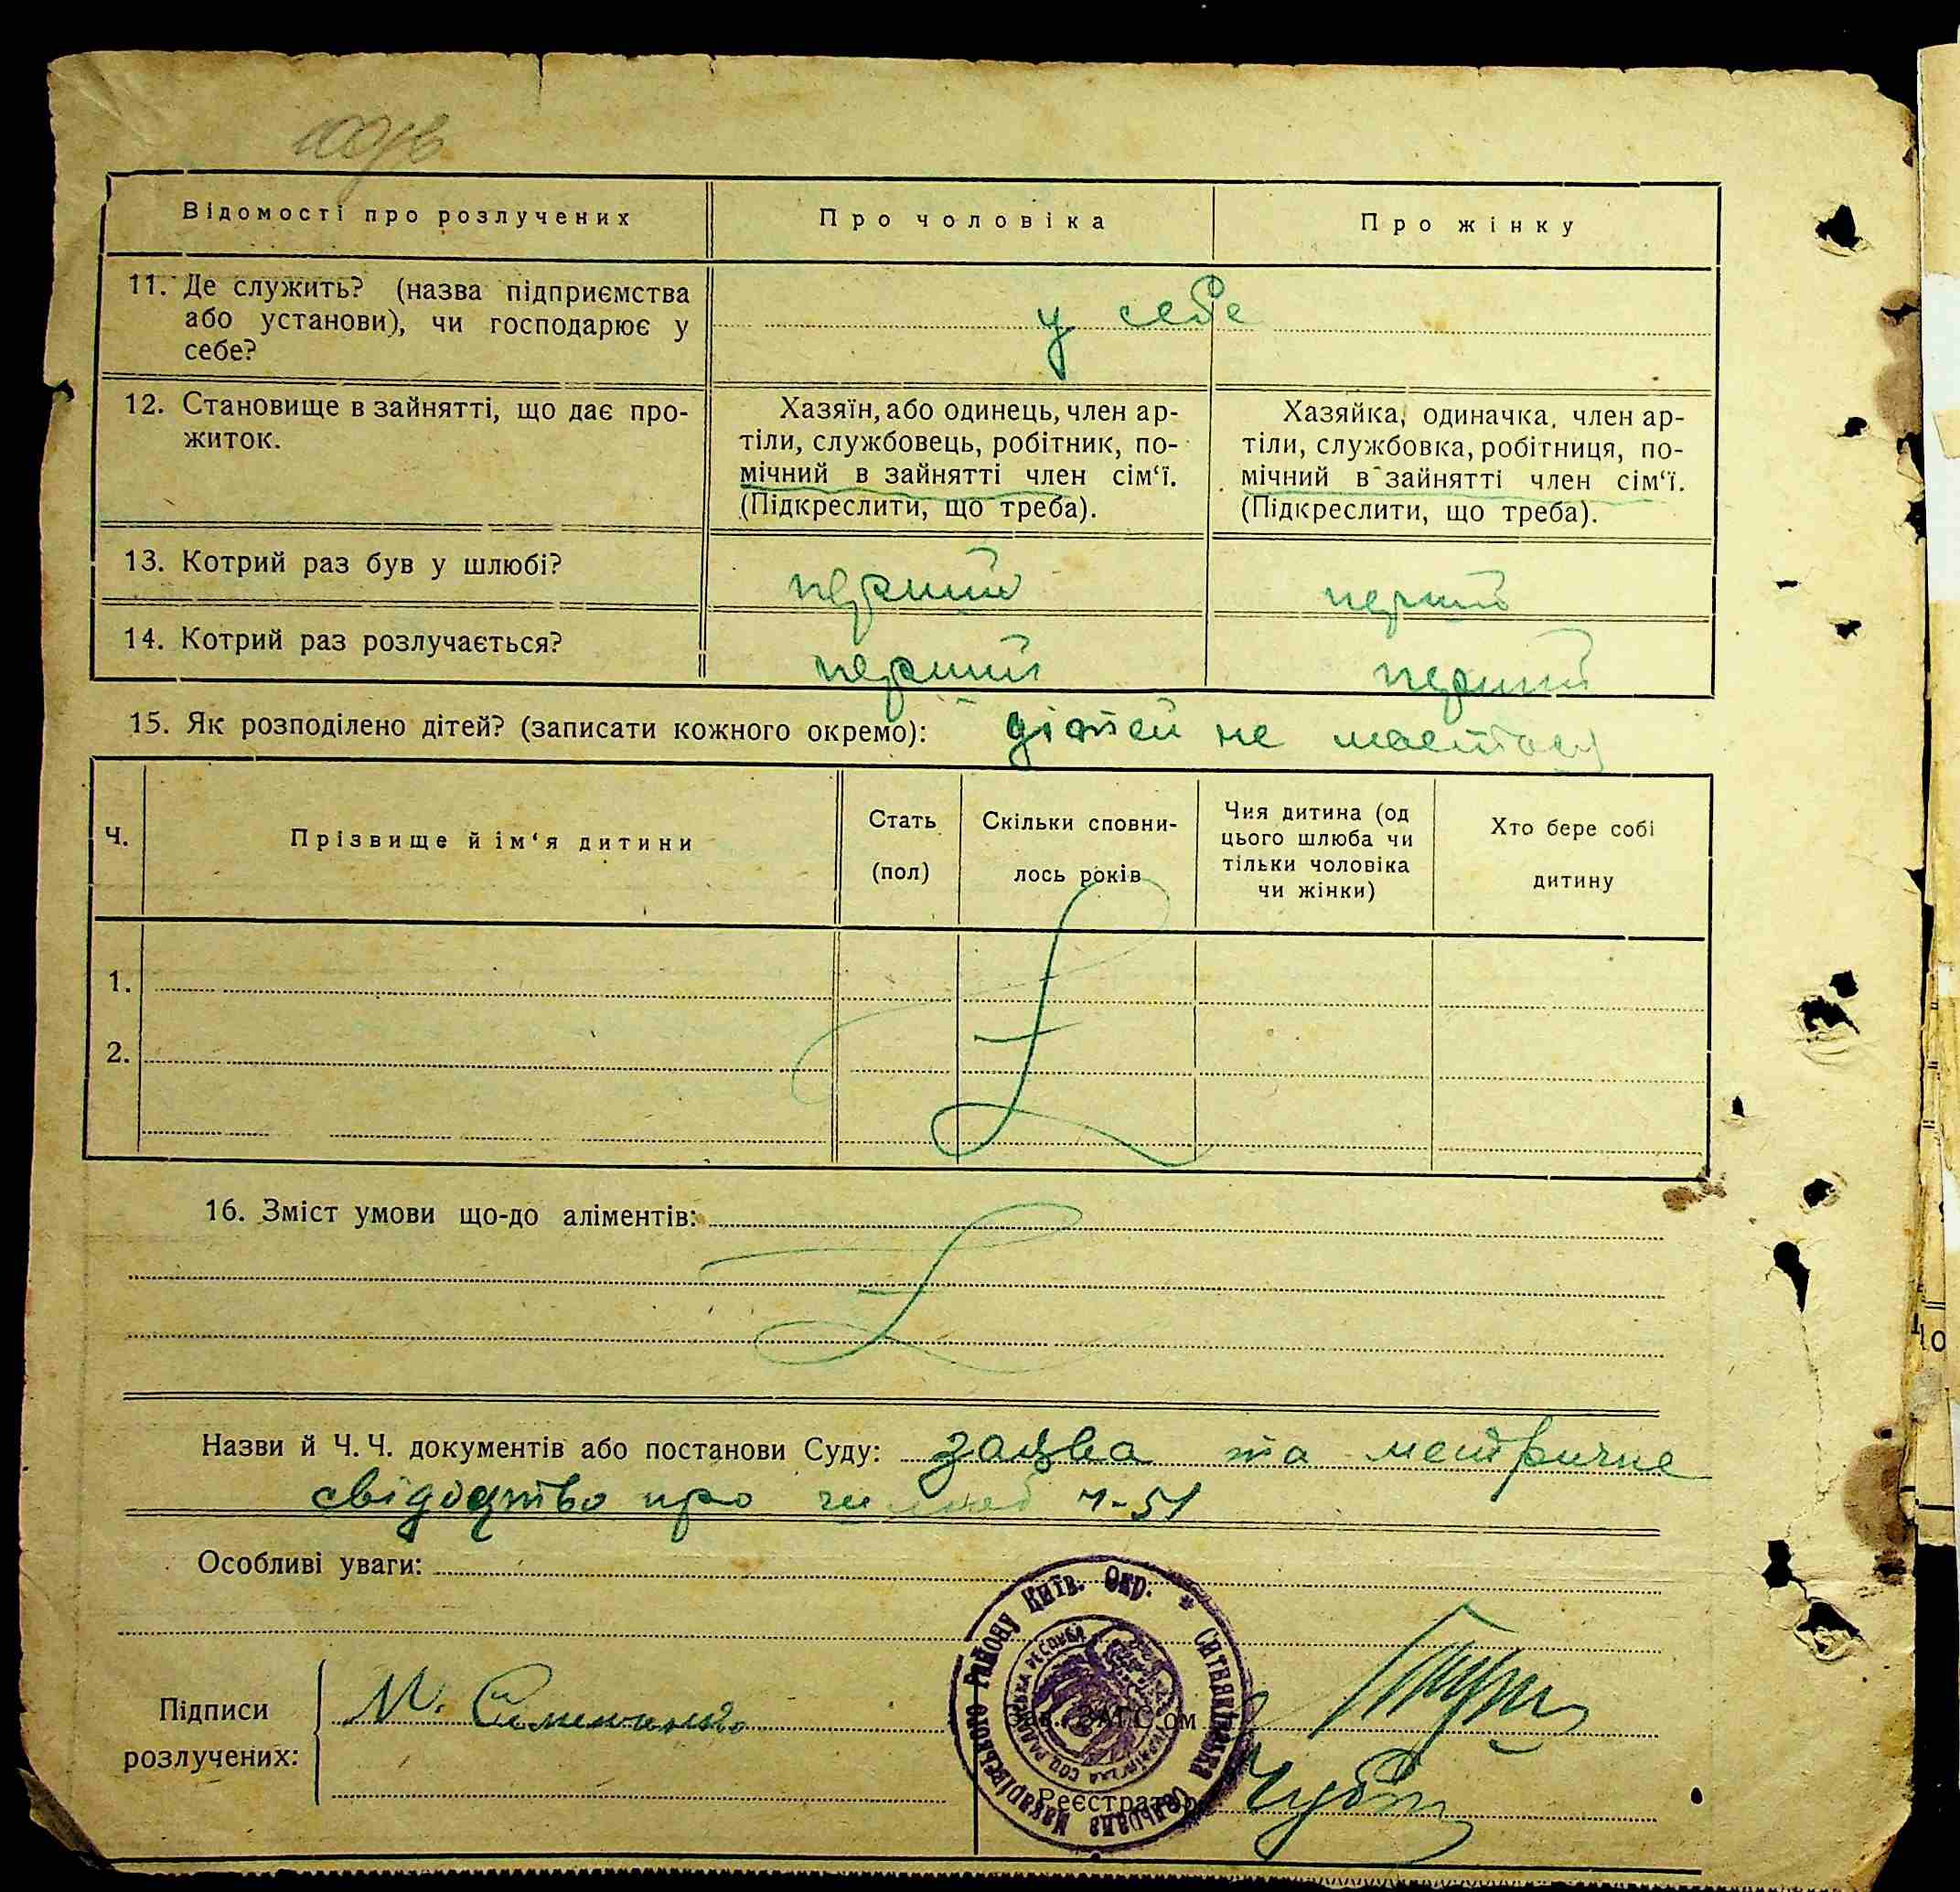 Відомості про розлучених
Про чоловіка
Про жінку
11. Де служить? (назва підприємства
або установи), чи господарює у
себе?
у себе
12. Становище в зайнятті, що дає про-
житок.
Хазяїн, або одинець, член ар-
тіли, службовець, робітник, по-
мічний в зайнятті член сім‘ї.
(Підкреслити, що треба).
Хазяйка, одиначка, член ар-
тіли, службовка, робітниця, по-
мічний в зайнятті член сім‘ї.
(Підкреслити, що треба).
13. Котрий раз був у шлюбі?
перший
перший
14. Котрий раз розлучається?
перший
перший
15. Як розподілено дітей? (записати кожного окремо): дітей не
Ч.
Прізвище й ім‘я дитини
Стать
(пол)
Скільки сповни-
лось років
Чия дитина (од
цього шлюба чи
тільки чоловіка
чи жінки)
Хто бере собі
дитину
1.
2.
16. Зміст умови що-до аліментів:
Назви й Ч. Ч. документів або постанови Суду: заява та метричне
свідоцтво про
Особливі уваги:
Підписи
розлучених:
М.
ЗАГС‘ом
Реєстратор
Ситняківська сільрада Макарівського Району Київ. Окр. *
10